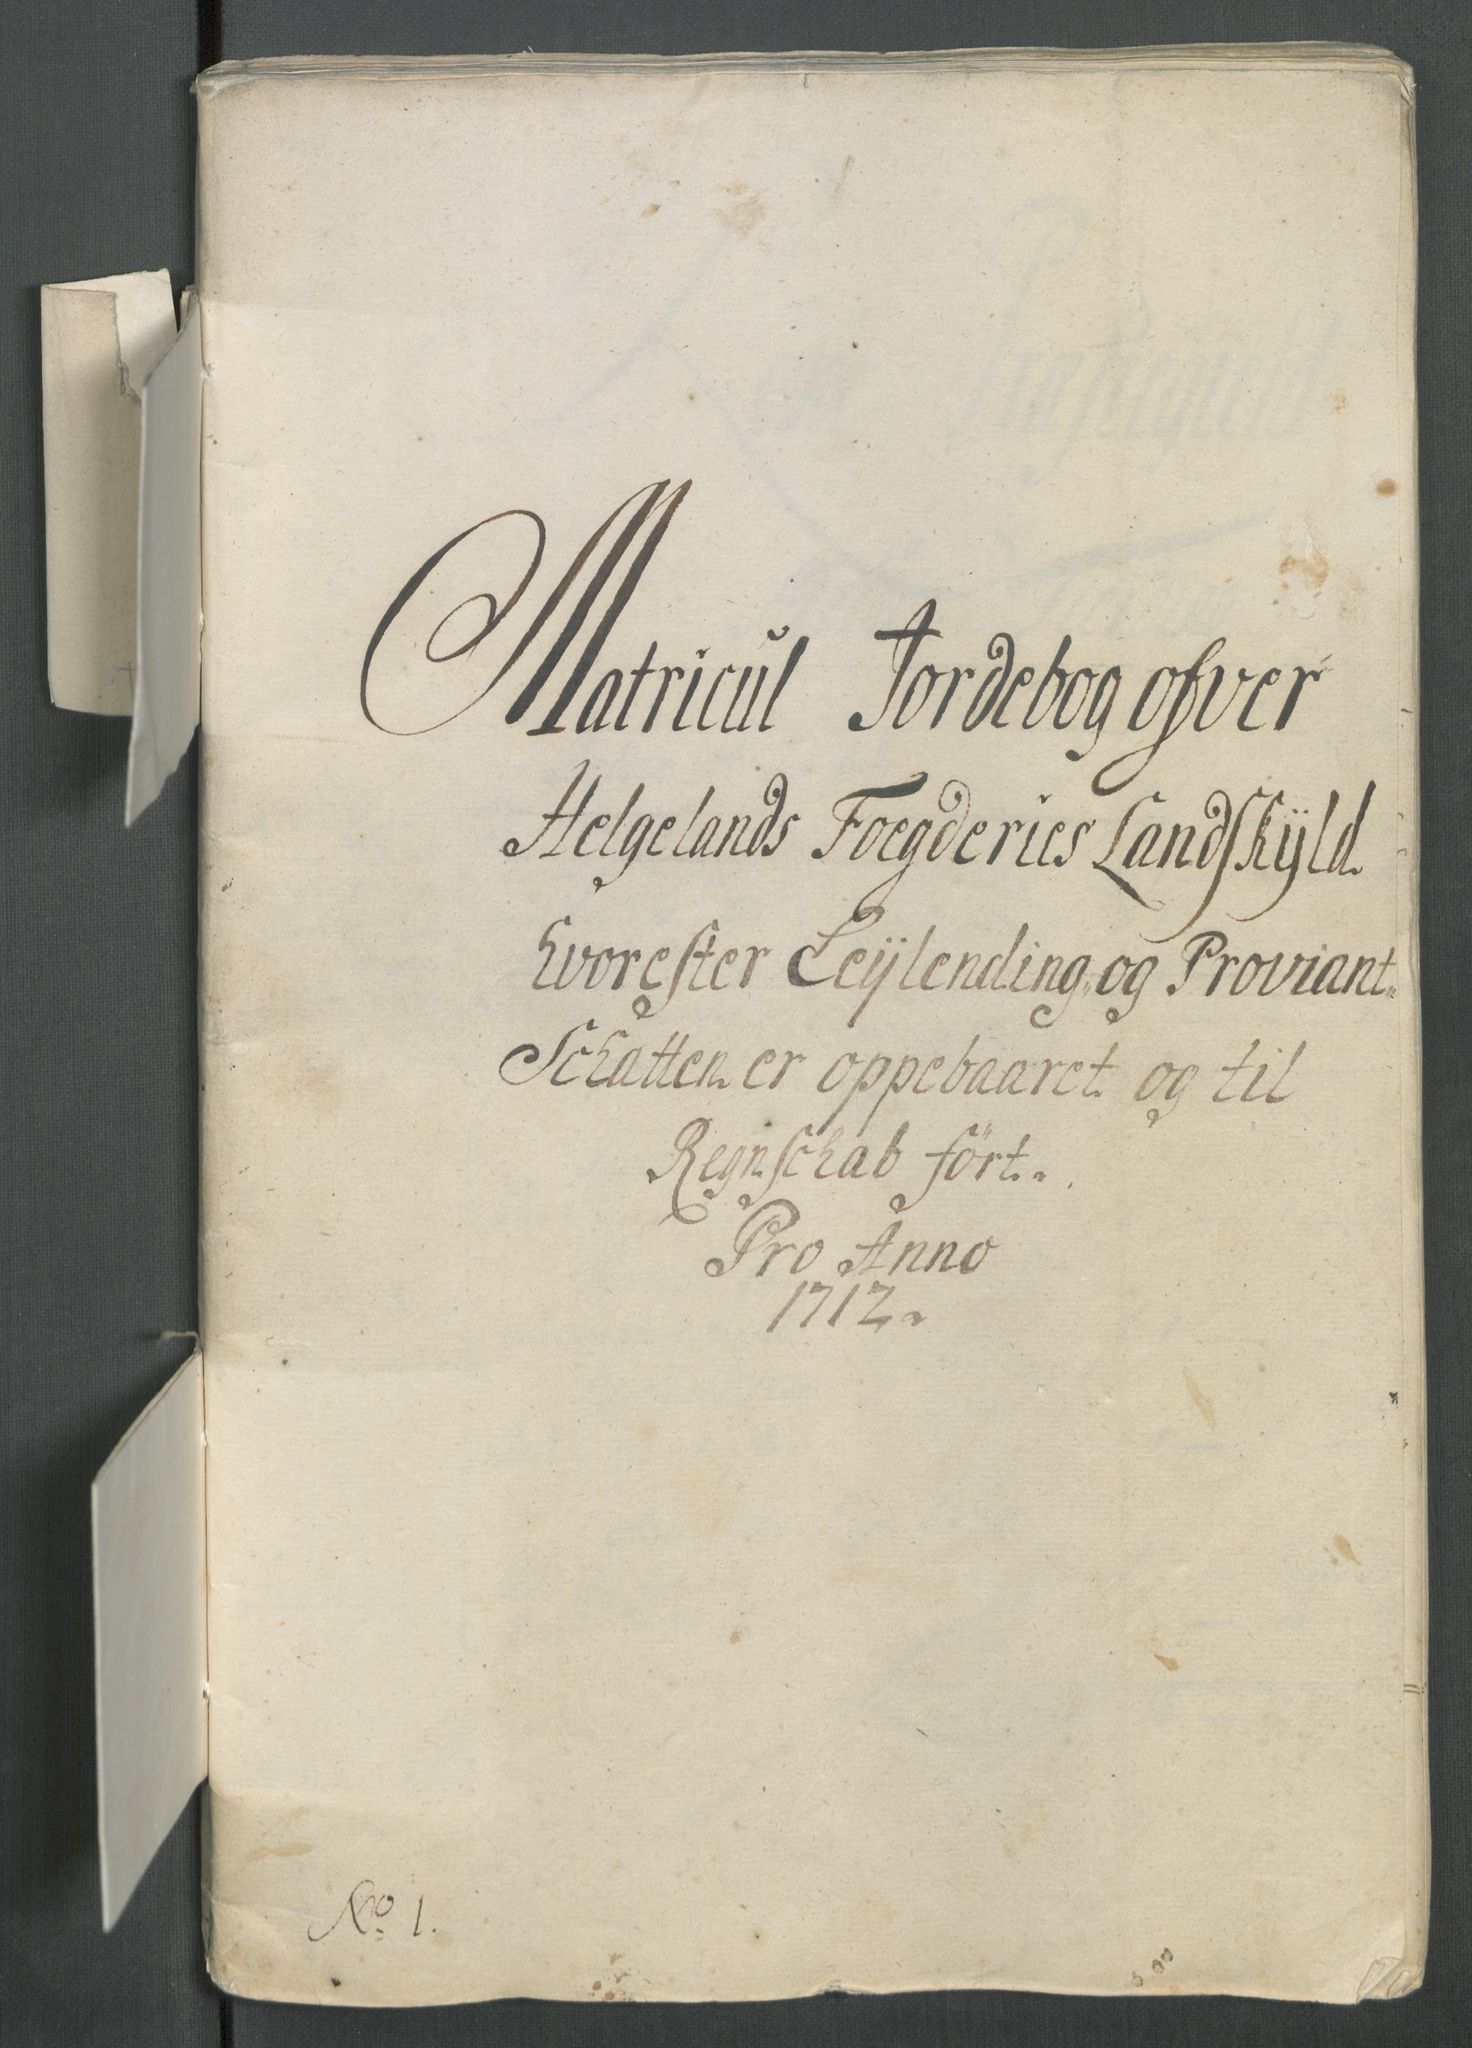 Matricul Jordebog ofver
Helgelands Foegderies Landskÿld
hvorefter Leÿlending og Proviant
Schatten er oppebaaret og til
Regnschab fört.
Pro Anno
1712.
No 1.